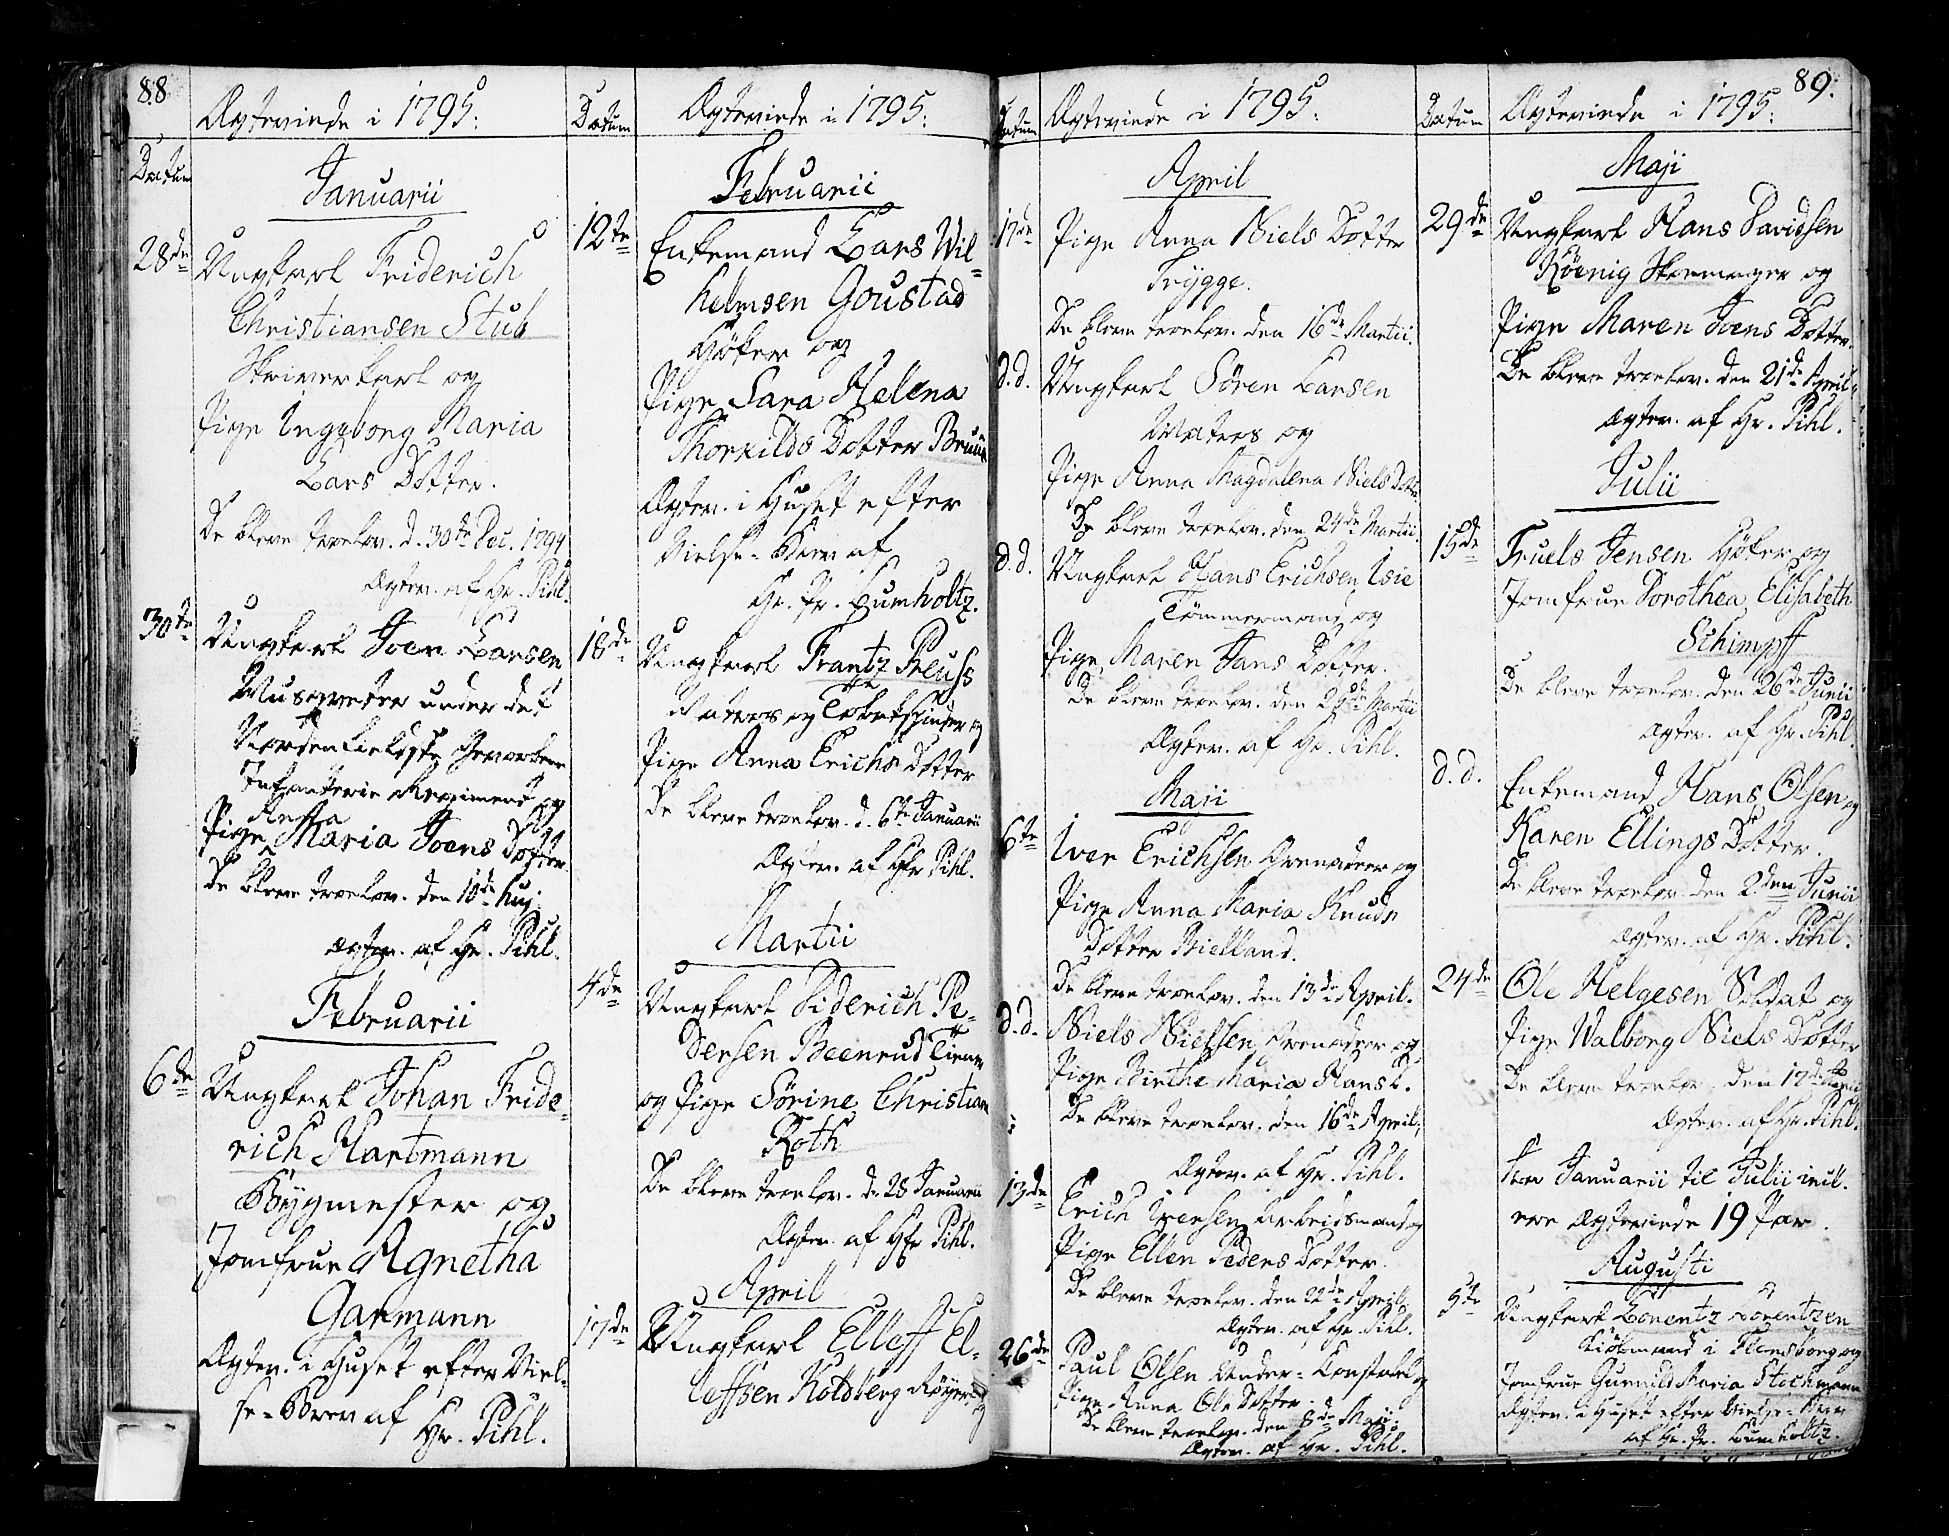 88
Ægteviede i 1795.
Datum
Januarii
28de Ungkarl Friderich
Christiansen Stub
Skriverkarl og
Pige Ingeborg Maria
Lars Dotter.
De bleve troelov. d. 30te Dec. 1794
Ægtev. af Hr. Pihl.
30te Ungkarl Joen Larsen
Musqueteer under det
Nordenfieldske Geworbene
Infanterie Regiment og
Pige Maria Joens Dotter
De bleve troelov. den 10de huj.
Ægtev. af Hr. Pihl.
Februarii
6de Ungkarl Johan Fride-
rich Hartmann
Bygmester og
Jomfrue Agnetha
Garmann
Ægtev. i Huset efter Viel-
se-Brev af Hr. Pihl.
Datum
Ægteviede i 1795.
Februarii
12te Enkemand Lars Wil-
helmsen Goustad
Høker og
Pige Sara Helena
Thorkilds Dotter Bruun
Ægtev. i Huset efter
Vielse-Brev af
Hr. Pr. Lumholtz.
18de Ungkarl Frantz Preuss
Matros og Tobakspinder og
Pige Anna Erichs Dotter
De bleve troelov. d. 6te Januarii
Ægtev. af Hr. Pihl.
Martii
4de Ungkarl Diderich Pe-
dersen Beenrud Tiener
og Pige Sørine Christian
Roth
De bleve troelov. d. 28 Januarii
Ægtev. af Hr. Pihl.
April
17de Ungkarl Elleff El-
leffsen Koldberg Røyert og
Datum
Ægteviede i 1795.
April
17de Pige Anna Niels Dotter
Trygge.
De bleve troelov. den 16de Martii.
d.d. Ungkarl Sören Larsen
Matros og
Pige Anna Magdalena Niels Dotter
De bleve troelov. den 24de Martii.
d.d. Ungkarl Hans Erichsen Isie
Tømmermand og
Pige Maren Jans Dotter.
De bleve troelov. den Martii
Ægtev. af Hr. Pihl.
Maji
6te Iver Erichsen Grenadeer og
Pige Anna Maria Knuds
Dotter Bielland.
De bleve troelov. den 13de April.
d.d. Niels Nielsen Grenadeer og
Pige Birthe Maria Hans D.
De bleve troelov. den 16de April.
Ægtev. af Hr. Pihl.
13de Erich Iversen Arbeidsmand og
Pige Ellen Peders Dotter.
De bleve troelov. den 22de April.
Ægtev. af Hr. Pihl.
26de Paul Olsen Under-Constabel og
Pige Anna Ole Dotter
De bleve troelov. den 8de Maji.
Ægtev. af Hr. Pihl.
89.
Datum
Ægteviede i 1795.
Maji
29de Ungkarl Hans Davidsen
Köenig Skoemager og
Pige Maren Joens Dotter.
De bleve troelov. den 21de April
Ægtev. af Hr. Pihl.
Julii
15de Truels Jensen Høker og
Jomfrue Dorothea Elisabeth
Schimpff
De bleve troelov. den 26de Junii
Ægtev. af Hr. Pihl.
d.d. Enkemand Hans Olsen og
Karen Ellings Dotter.
De bleve troelov. den 2den Junii
Ægtev. af Hr. Pihl.
24de Ole Helgesen Soldat og
Pige Walborg Niels Dotter
De bleve troelov. den 17de
Ægtev. af Hr. Pihl.
Fra Januarii til Julii incl.
ere Ægteviede 19 Par.
Augusti
5te Ungkarl Lorentz Lorentzen
Kiøbmand i Flensborg og
Jomfrue Gunnild Maria Stockmann
Ægtev. i Huset efter Vielse-Brev
af Hr. Pr. Lumholtz.